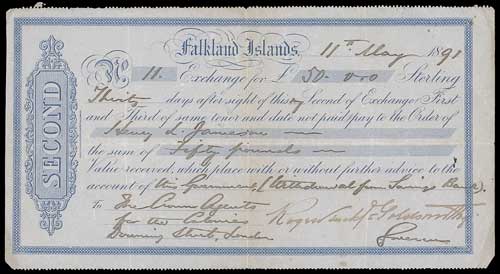 SECOND
Falkland Islands, 11th May 1891
No. 11. Exchange for £ 50-0-0 Sterling
Thirty days after sight of this my Second of Exchange First
and Third of same tenor and date not paid pay to the Order of
Henry L. Jameson
the sum of Fifty pounds
Value received, which place with or without further advice to the
account of this Government (Withdrawal from Savings Bank)
To The Crown Agents
for the Colonies
Downing Street, London
Goldsworthy
Governor